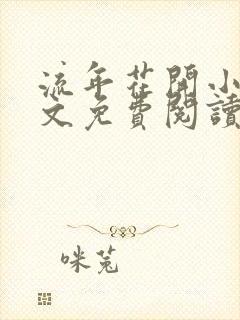 流年花開小
文免費閱讀
咪菟